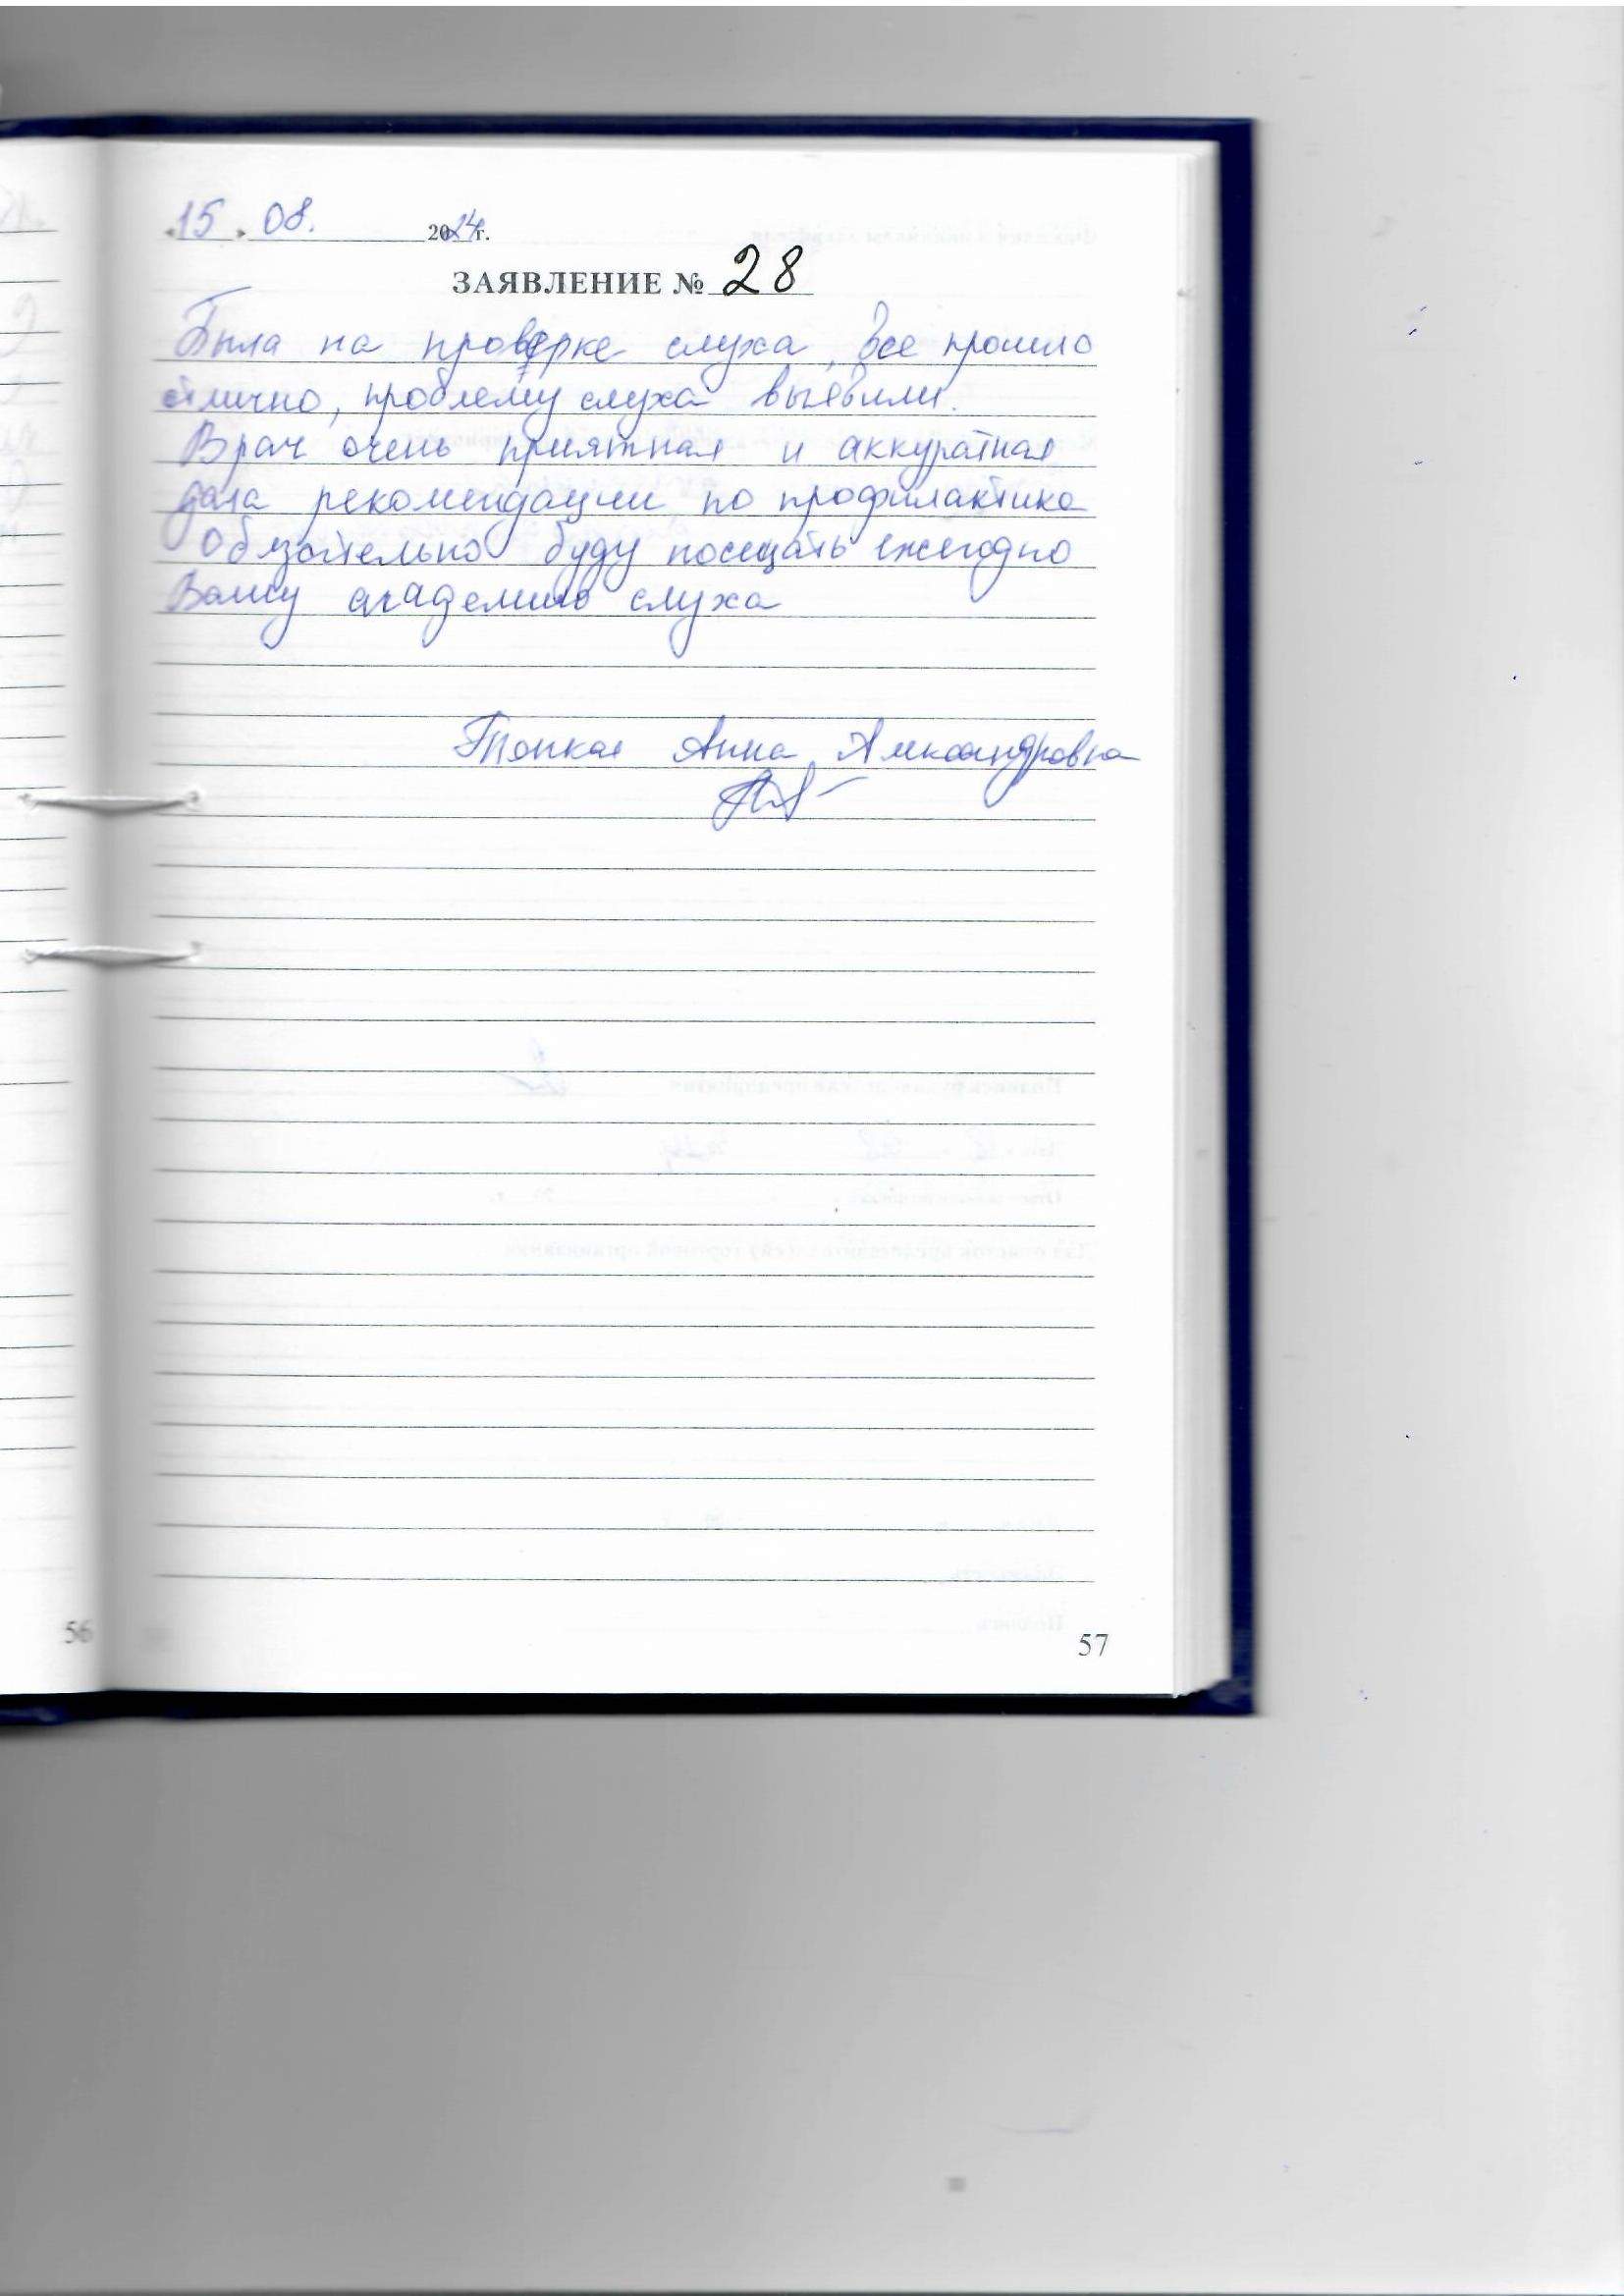 «15» 08. 2024г.
ЗАЯВЛЕНИЕ № 28
Была на проверке слуха, все прошло
отлично, проблему слуха выявили.
Врач очень приятная и аккуратная
дала рекомендации по профилактике
Обязательно буду посещать ежегодно
Вашу академию слуха
Тонкая Анна Александровна
56
57